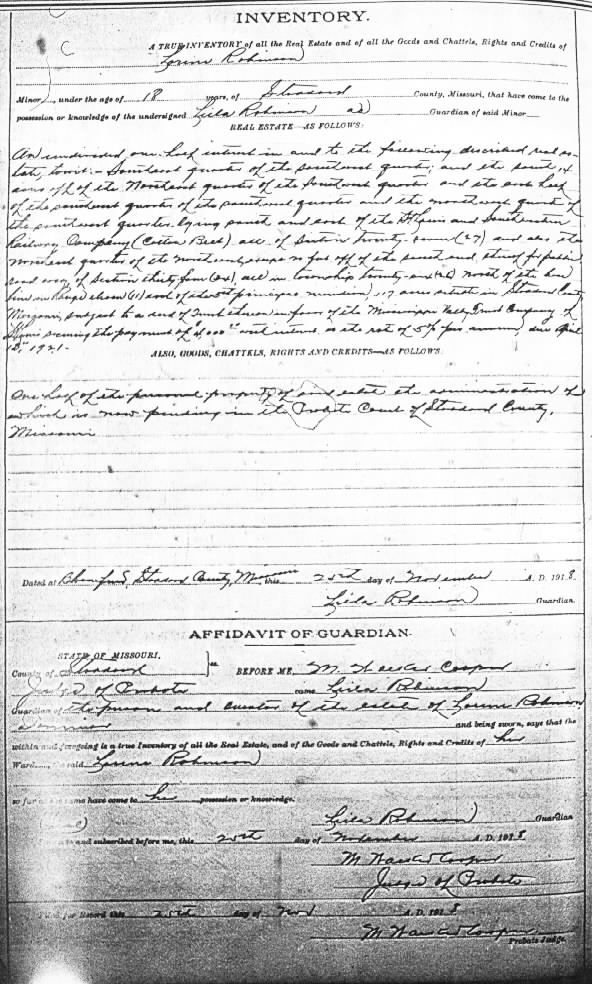 INVENTORY.
C
A TRUE INVENTORY of all the Real Estate and of all the Goods and Chattels, Rights and Credits of
Lorene Robinson
Minor, under the age of 18 years, of Stoddard County, Missouri, that have come to the
possession or knowledge of the undersigned Leila Robinson as Guardian of said Minor
REAL ESTATE—AS FOLLOWS:
An undivided one half interest in and to the following described real es-
tate, towit:- Southeast quarter of the southwest quarter; and the south
acres off of the Northeast quarter of the Southwest quarter and the east half
of the southwest quarter of the southwest quarter and the northwest quarter of
the southwest quarter lying south and east of the St Louis and Southwestern
Railway Company (Cotton Belt) all of Section twenty seven (27) and also the
Northeast quarter of the Northwest, except feet off of the south end thereof for public
road way, of Section thirty four (34), all in township twenty six (26) north of the base
line in Range eleven (11) east of the 5th principal meridian, 117 acres in Stoddard County
Missouri, subject to a deed of Trust thereon in favor of the Mississippi Valley Trust Company of
St Louis securing the payment of $4,000 interest at the rate of 5% per annum, due April
1921.
ALSO, GOODS, CHATTELS, RIGHTS AND CREDITS—AS FOLLOWS:
One half of the personal property of estate the administration of
which is now pending in the Probate Court of Stoddard County,
Missouri
Dated at Stoddard County, Missouri this day of November A. D. 1918
Leila Robinson Guardian
AFFIDAVIT OF GUARDIAN.
STATE OF MISSOURI,
County of Stoddard ss BEFORE ME, M. Cooper
Judge of Probate came Leila Robinson
Guardian of the person and curator of the estate of Lorene Robinson
a minor and being sworn, says that the
within and foregoing is a true Inventory of all the Real Estate, and of the Goods and Chattels, Rights and Credits of her
Ward, said Lorene Robinson
so far as same have come to her possession or knowledge.
Leila Robinson Guardian
and subscribed before me, this day of November A. D. 1918
M. Cooper
Judge of Probate
Filed for Record this day of Nov A. D. 1918
M. Cooper
Probate Judge.